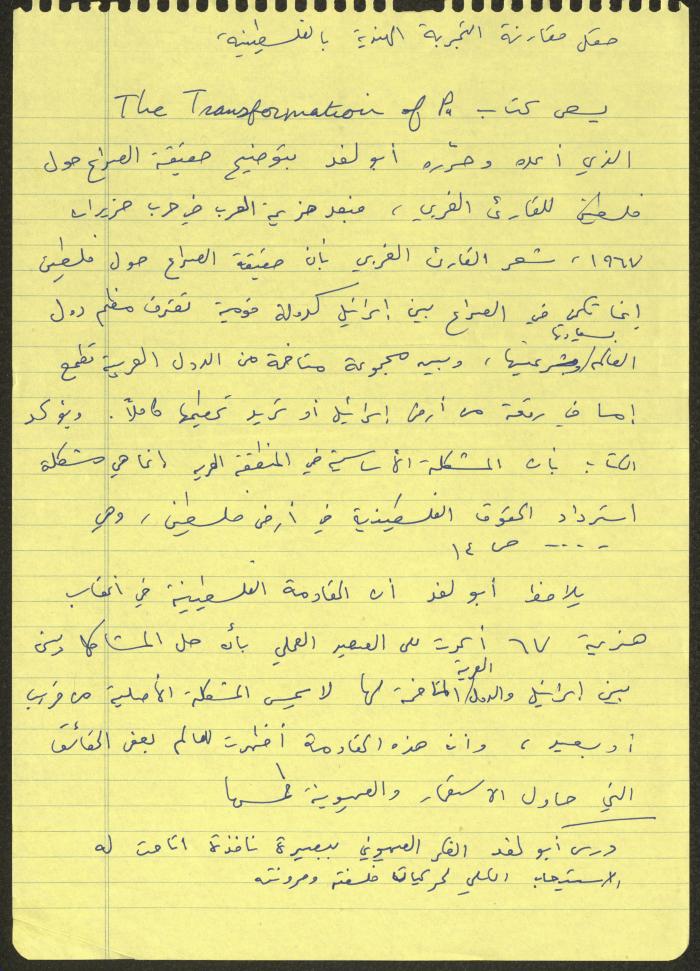 مقارنة التجربة الهندية بالفلسطينية
كتاب The Transformation of Pa
الذي أعده وحرّره أبو لغد بتوضيح حقيقة الصراع حول
فلسطين للقارئ الغربي ، فبعد هزيمة العرب في حرب حزيران
١٩٦٧ ، شعر القارئ الغربي بأن حقيقة الصراع حول فلسطين
إنما تكمن في الصراع بين إسرائيل كدولة قومية تعترف معظم دول
بسيادتها
العالم / وشرعيتها ، وبين مجموعة متاخمة من الدول العربية تطمع
إما في رقعة من أرض إسرائيل أو تريد تحطيمها كاملاً . ويؤكد
الكتاب بأن المشكلة الأساسية في المنطقة العربية إنما هي مشكلة
استرداد الحقوق الفلسطينية في أرض فلسطين ، وهي
.... ص ١٤
يلاحظ أبو لغد أن المقاومة الفلسطينية في أعقاب
هزيمة ٦٧ على الصعيد العملي بأن حل المشاكل
العربية
بين إسرائيل والدول / المتاخمة لها لا يمس المشكلة الأصلية من قريب
أو بعيد ، وأن هذه المقاومة أظهرت للعالم بعض الحقائق
التي حاول الاستعمار والصهيونية طمسها
درس أبو لغد الفكر الصهيوني ببصيرة نافذة أتاحت له
الاستيعاب الكلي فلسفته ومرونته